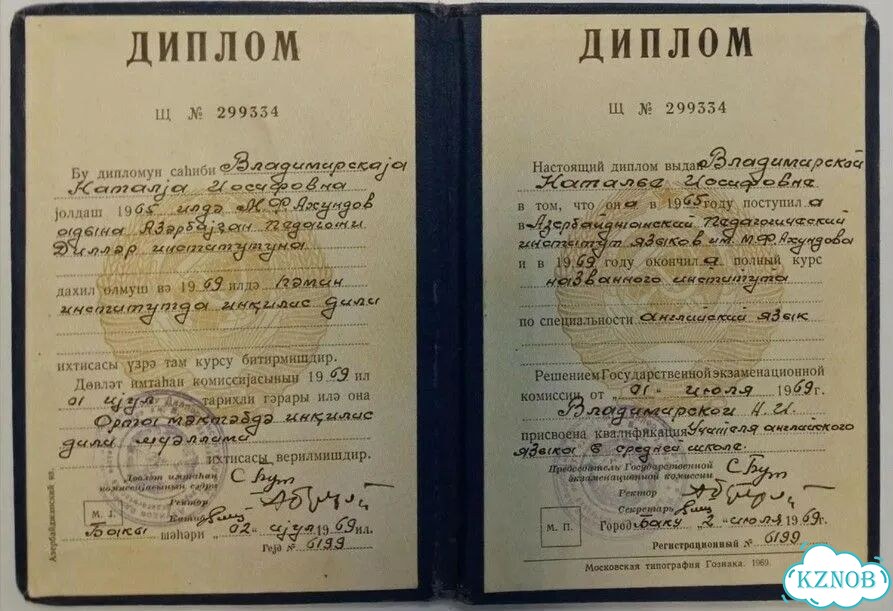 ДИПЛОМ
Щ № 299334
Бу дипломун саһиби Владимирскаја
Наталја Иосифовна
јолдаш 1965 илдә М.Ф.Ахундов
адына Азәрбајҹан Педагожи
Дилләр институтуна
дахил олмуш вә 1969 илдә һәмин
институтда инҝилис дили
ихтисасы үзрә там курсу битирмишдир.
Дөвләт имтаһан комиссијасынын 1969 ил
01 ијул тарихли гәрары илә она
Орта мәктәбдә инҝилис
дили мүәллими
ихтисасы верилмишдир.
Дөвләт имтаһан
комиссијасынын сәдри
Ректор
Катиб
М. Ј.
Бакы шәһәри "02" ијул 1969 ил.
Геjд № 6199
Азербайджанский яз.
ДИПЛОМ
Щ № 299334
Настоящий диплом выдан Владимирской
Наталье Иосифовне
в том, что она в 1965 году поступила
в Азербайджанский Педагогический
институт языков им. М.Ф.Ахундова
и в 1969 году окончила полный курс
названного института
по специальности английский язык
Решением Государственной экзаменационной
комиссии от "01" июля 1969 г.
Владимирской Н.И.
присвоена квалификация Учителя английского
языка в средней школе.
Председатель Государственной
экзаменационной комиссии
Ректор
Секретарь
М. П.
Город Баку 2 "июля 1969 г.
Регистрационный № 6199
Московская типография Гознака. 1969.
KZNOB